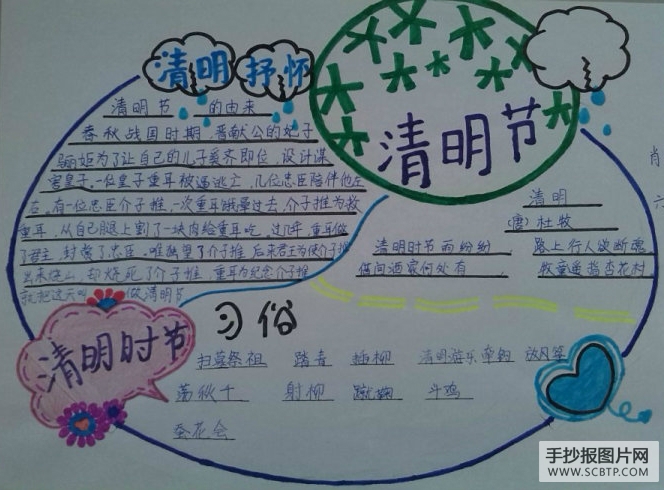 清明 抒怀
清明节
清明节 的由来
春秋战国时期，晋献公的妃子
骊姬为了让自己的儿子奚齐即位，设计谋
害皇子，一位皇子重耳被逼逃亡，几位忠臣陪伴他左
右，有一位忠臣介子推，一次重耳饿晕过去，介子推为救
重耳，从自己腿上割了一块肉给重耳吃，过几年，重耳做
了君主，封赏了忠臣，唯独望了介子推
出来烧山，却烧死了介子推，重耳为纪念介子推
就把这天叫 做清明节
清明
（唐）杜牧
清明时节雨纷纷 路上行人欲断魂
借问酒家何处有 牧童遥指杏花村
清明时节
习俗
扫墓祭祖 踏青 插柳 放风筝
荡秋千 射柳 蹴鞠 斗鸡
蚕花会
手抄报图片网
WWW.SCBTP.COM